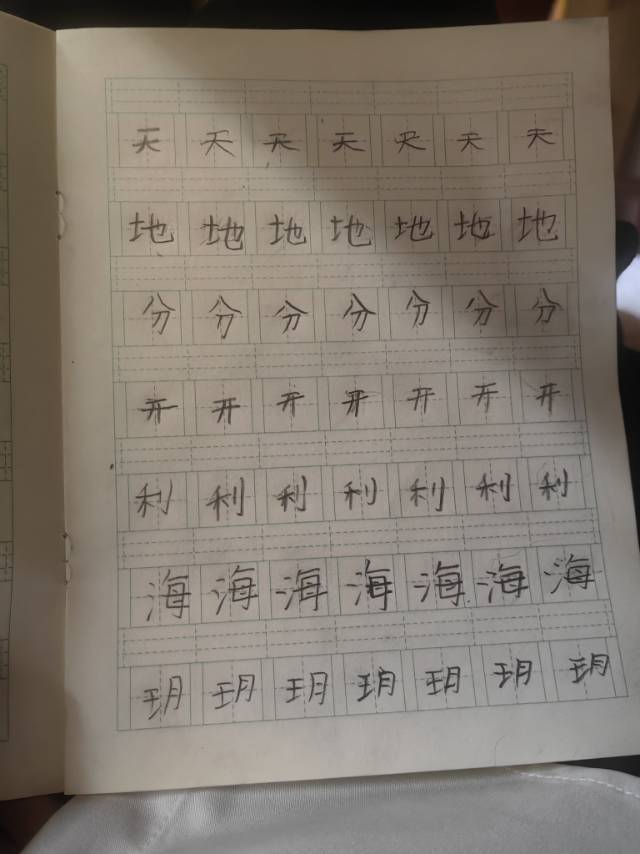 天 天 天 天 天 天 天
地 地 地 地 地 地 地
分 分 分 分 分 分 分
开 开 开 开 开 开 开
利 利 利 利 利 利 利
海 海 海 海 海 海 海
玥 玥 玥 玥 玥 玥 玥